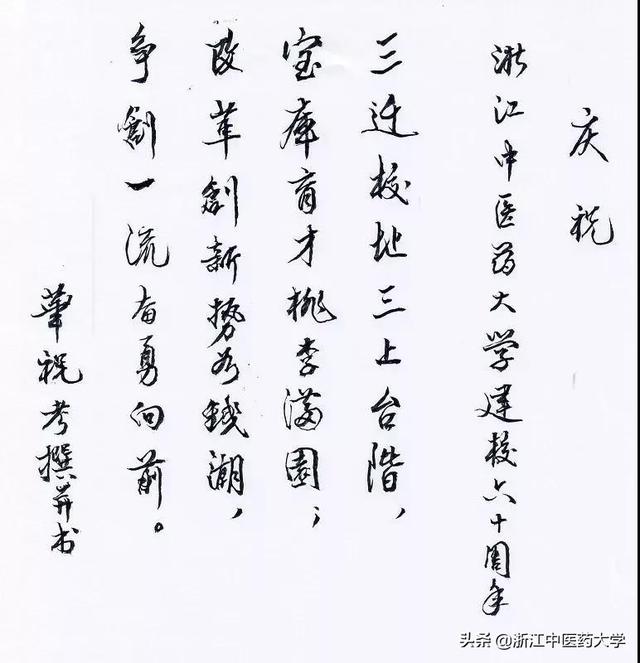 庆祝
浙江中医药大学建校六十周年
三迁校址三上台阶，
宝库育才桃李满园；
改革創新勢如錢潮，
争創一流奋勇向前。
華祝考撰并书
头条 @浙江中医药大学